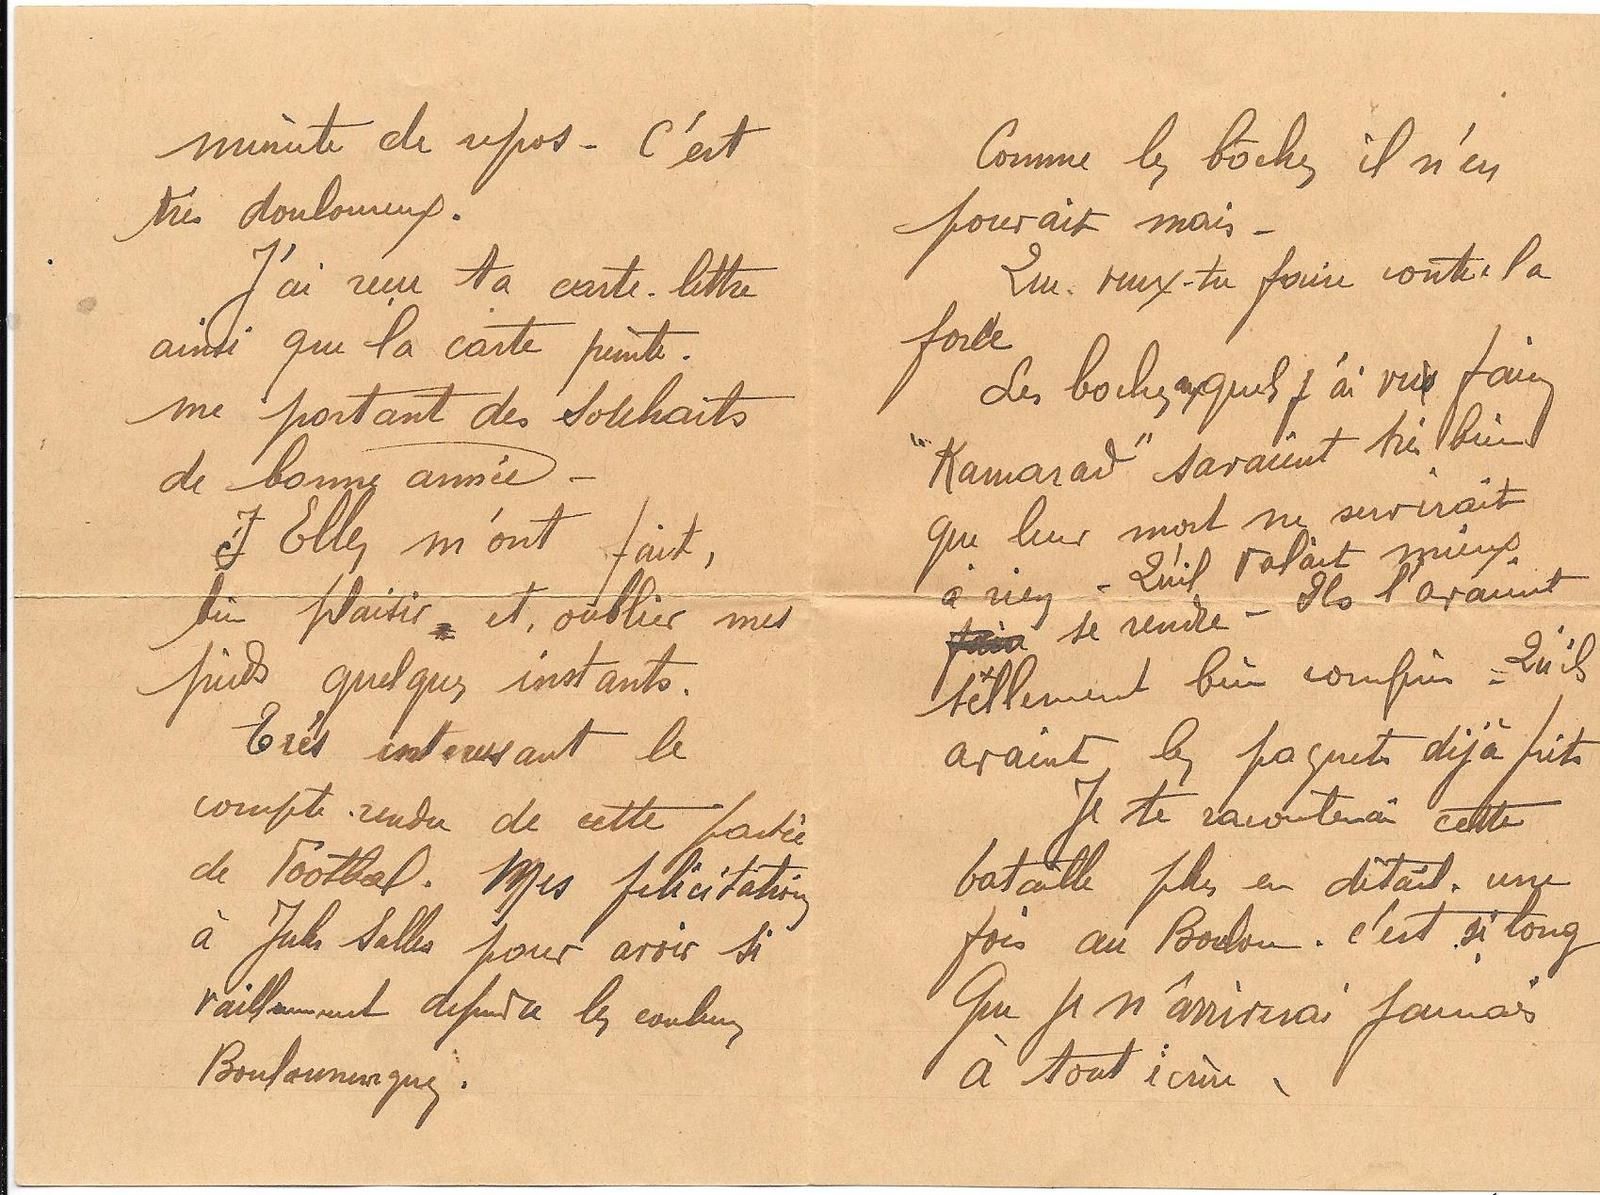 minute de repos - C'est
très douloureux.
J'ai reçu ta carte-lettre
ainsi que la carte peinte.
me portant des souhaits
de bonne année -
Elles m'ont fait,
bien plaisir et, oublier mes
pieds quelques instants.
Très interessant le
compte-rendu de cette partie
de Football. Mes félicitations
à Jules Salles pour avoir si
vaillamment defendu les couleurs
Boulounenques.
Comme les bôches il n'en
pouvait mais -
Que veux-tu faire contre la
force
Les boches auxquels j'ai vu faire
"Kamarad" savaient très bien
que leur mort ne servirait
à rien - Qu'il valait mieux
se rendre - Ils l'avaient
tellement bien compris - Qu'ils
avaient les paquets déjà prêts
Je te raconterai cette
bataille plus en détail. une
fois au Boulou. c'est si long
Que je n'arriverai jamais
à tout écrire.